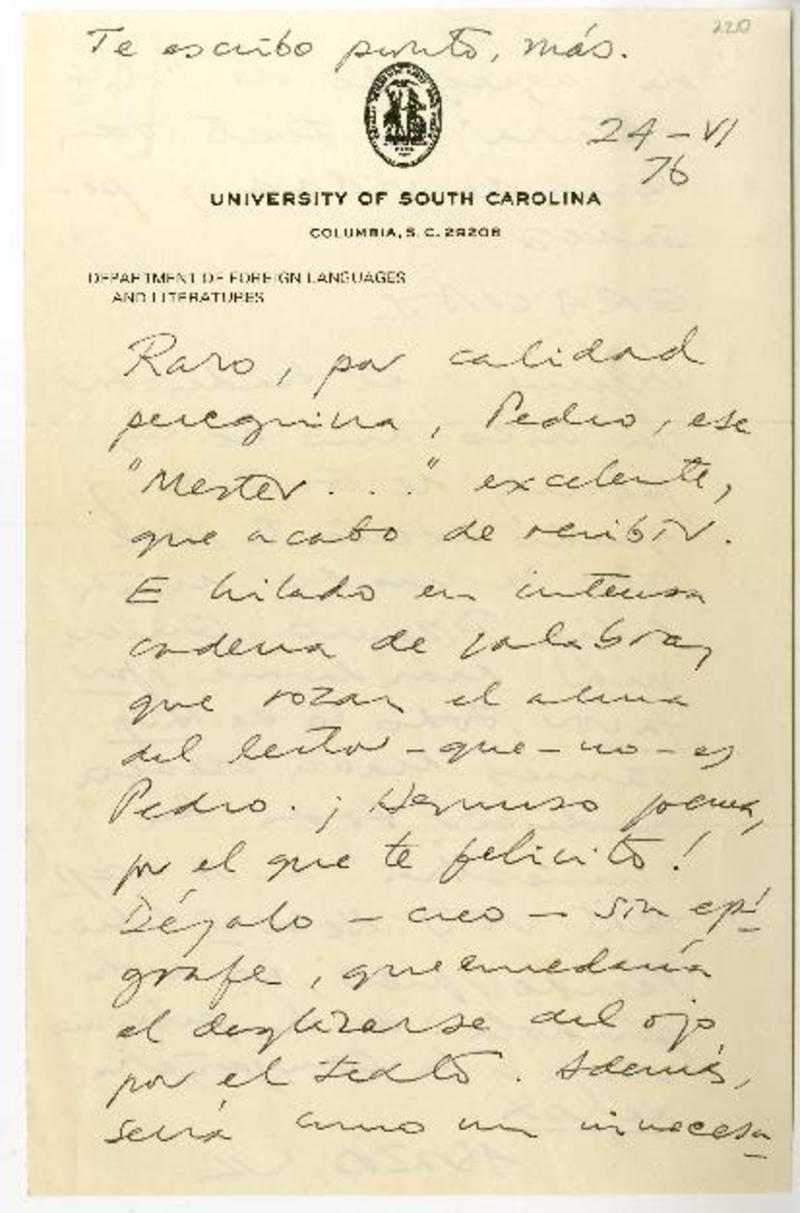 220
Te escribo pronto, más.
24-VI
76
UNIVERSITY OF SOUTH CAROLINA
COLUMBIA, S. C. 29208
DEPARTMENT OF FOREIGN LANGUAGES
AND LITERATURES
Raro, por calidad
peregrina, Pedro, ese
"Mester..." excelente,
que acabo de recibir.
E hilado en intensa
cadena de palabras
que rozan el alma
del lector-que-no-es
Pedro. ¡Hermoso poema,
por el que te felicito!
Déjalo - creo - sin epí
grafe, que enredaría
el deslizarse del ojo
por el texto. Además,
será como un innecesa